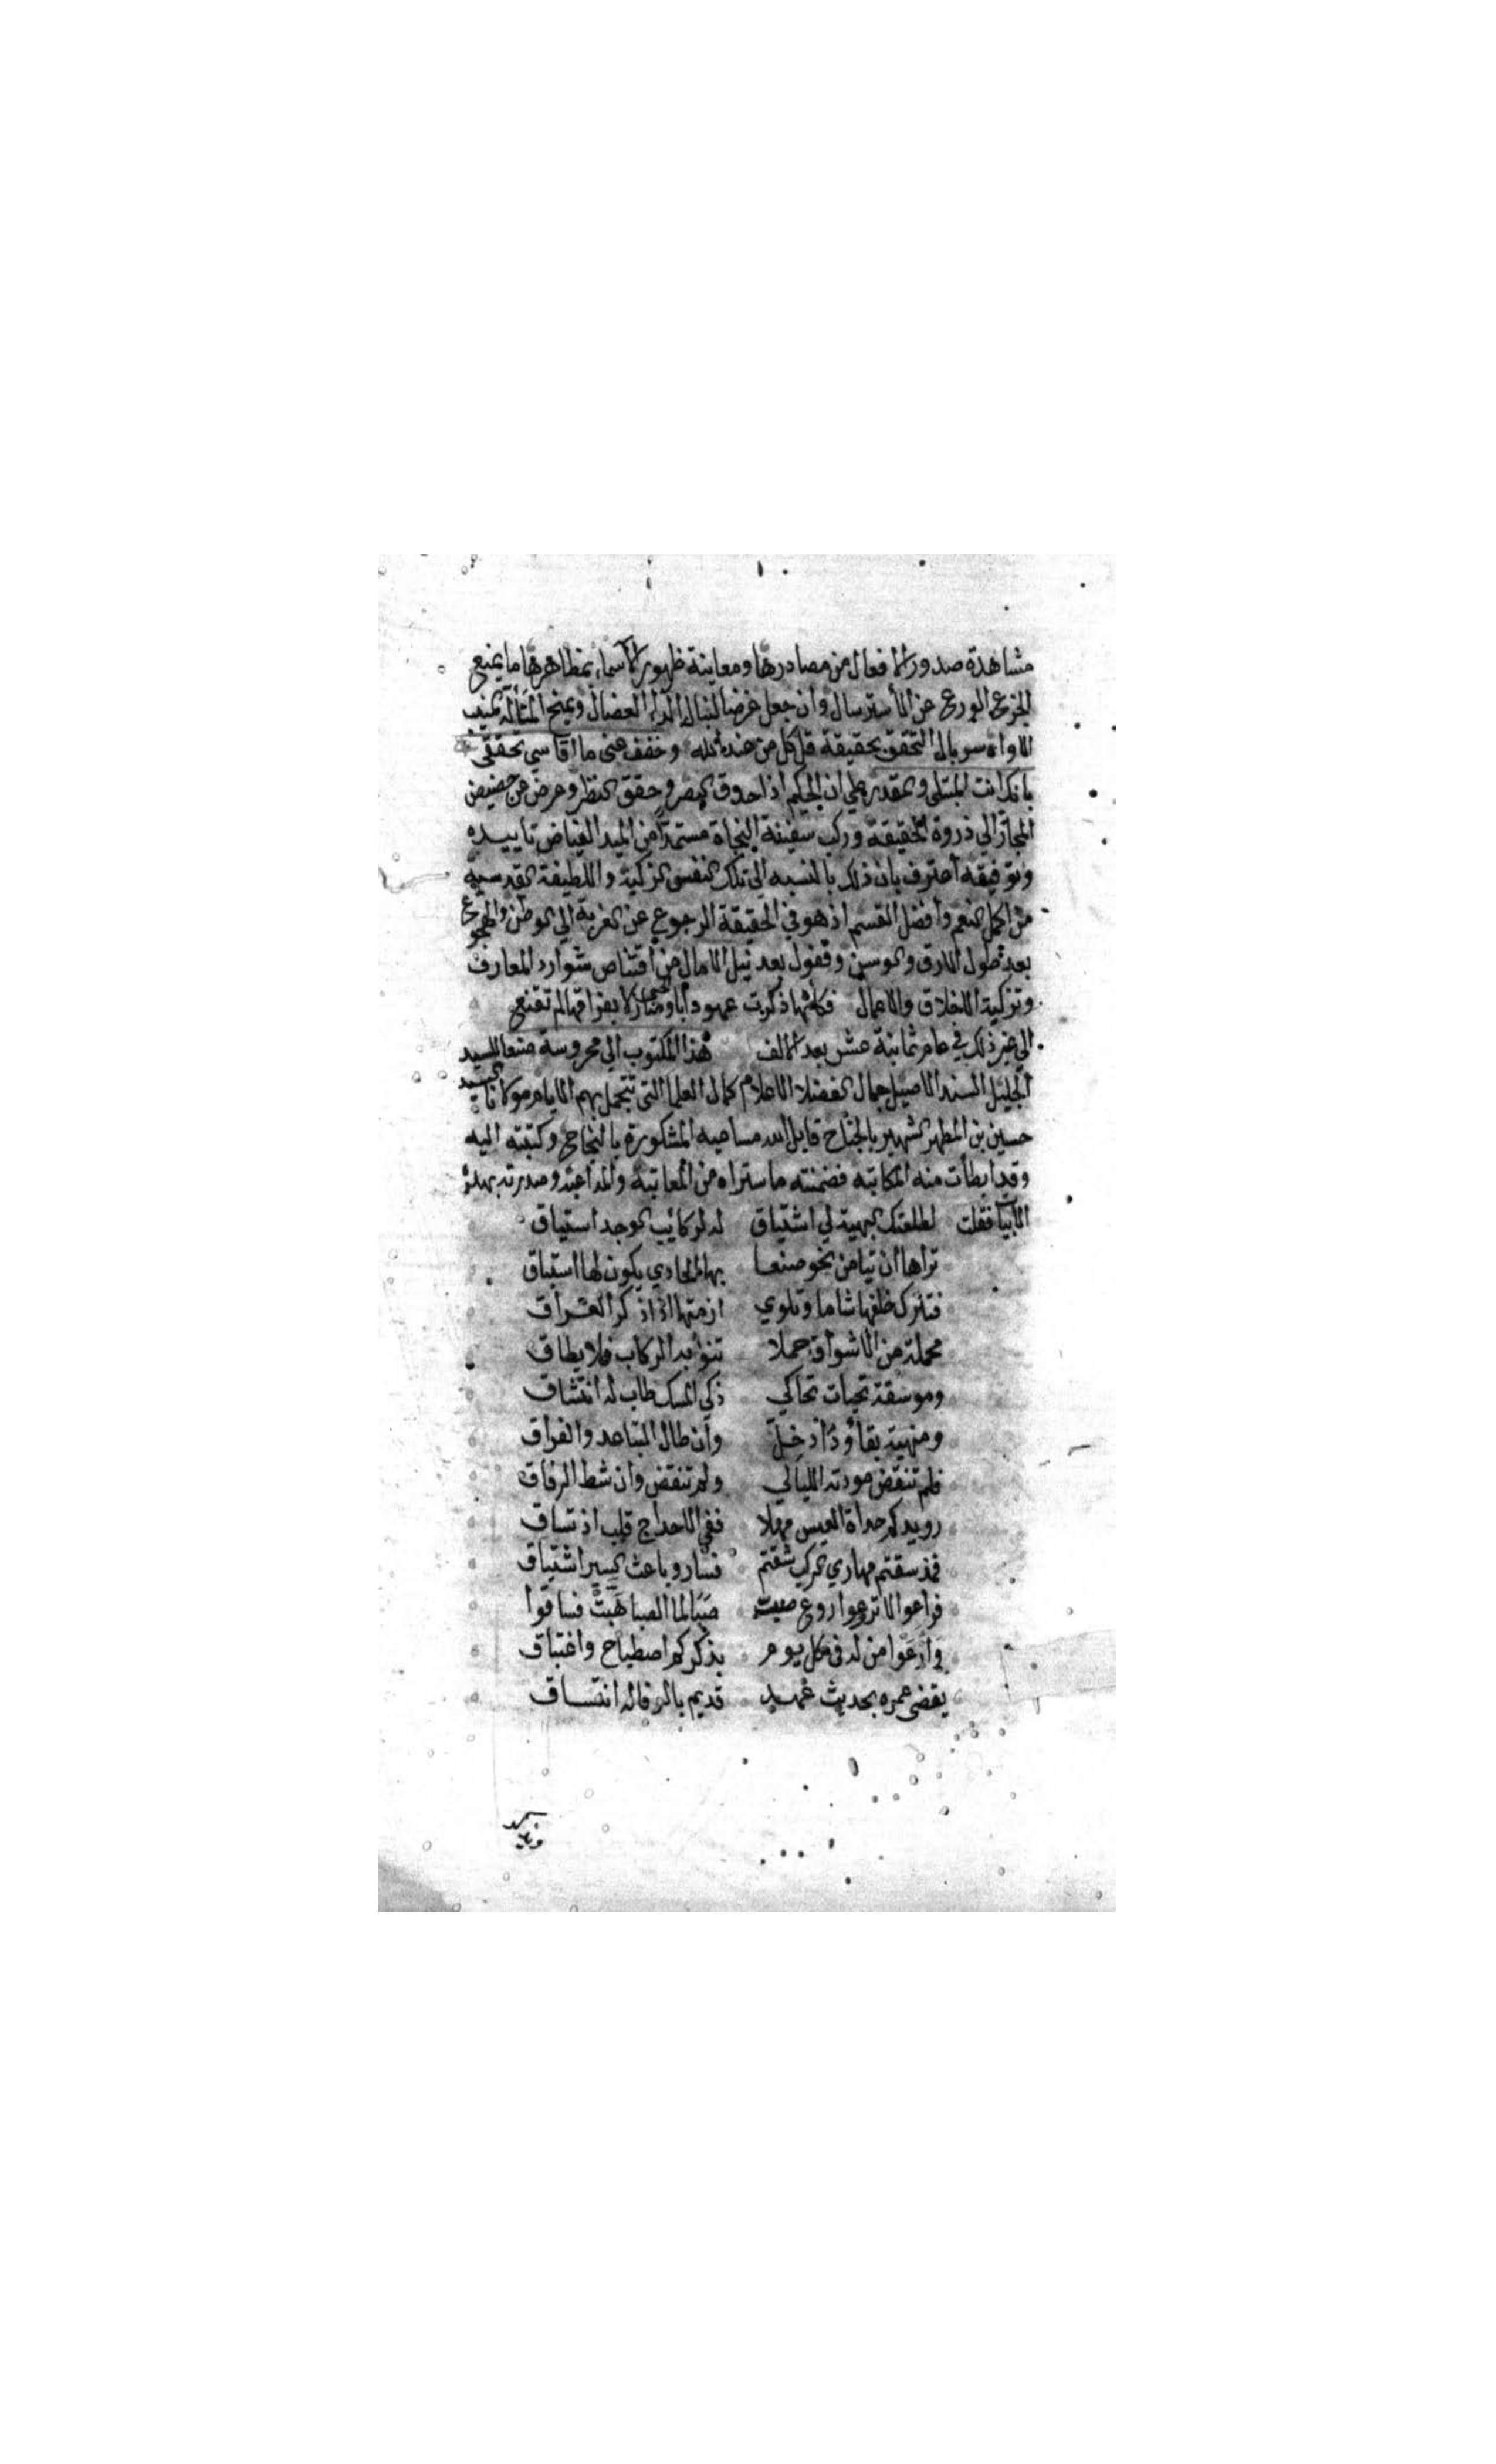 مشاهدة صدور الافعال من مصادرها ومعاينة ظهور الاسماء بمظاهرها ما يمنع
الجزع الورع عن الأسترسال وان جعل غرضا لنبال الداء العضال ويمنح المتأله المنيب
الاواه سربال التحقق بحقيقة قل كل من عند الله وخفف عني ما اقاسي تحققي
بانك انت المبتلي والمقدر على ان الحكيم اذا حدق البصر وحقق النظر وعرض عن حضيض
المجاز الي ذروة الحقيقة وركب سفينة النجاة مستمدا من المبد الفياض تاييده
وتوفيقه اعترف بان ذلك بالنسبه الى تلك النفس الزكية واللطيفة القدسية
من اكمل النعم وأفضل القسم اذ هو في الحقيقة الرجوع عن الغربة الي الوطن والهجوع
بعد طول الارق والوسن وقفول بعد نيل الامال من اقتناص شوارد المعارف
وتزكية الاخلاق والاعمال فكأنها ذكرت عهودا بالحمى ومنازلا بفراقها لم تقنع
الي غير ذلك في عام ثمانية عشر بعد الالف هذا المكتوب الي محروسة صنعا للسيد
الجليل السند الاصيل جمال الفضلا الاعلام كمال العلما التي تتجمل بهم الايام مولانا السيد
حسين بن المطهر الشهير بالجناح قابل الله مساعيه المشكورة بالنجاح وكتبته اليه
وقد ابطأت منه المكاتبه فضمنته ما ستراه من المعاتبة والمداعبة وصدرته بهذه
الابيات فقلت لطلعتك البهية لي اشتياق له لركائب الوجد استياق
تراها ان تيامن نحو صنعا بها الحادي يكون لها استباق
فتترك خلفها شاما وتلوي ازمتها اذا ذكر العراق
محملة من الاشواق حملا تنوء به الركاب فلا يطاق
وموسقة تحيات تحاكي ذكي المسك طاب له انتشاق
ومنهية بقا وداد خل وان طال التباعد والفراق
فلم تنقض مودته الليالي ولم تنقض وان شط الرفاق
رويدكم حداة العيس مهلا ففي الاحداج قلب اذ تساق
فمذ سقتم مهاري الركب شقتم فسار وباعث السير اشتياق
فراعوا لا تروعوا روع صب صبا لما الصبا هبت فساقوا
وارعوا من له في كل يوم بذكركم اصطباح واغتباق
يقضى عمره بحديث عهد قديم بالرفاله انتساق